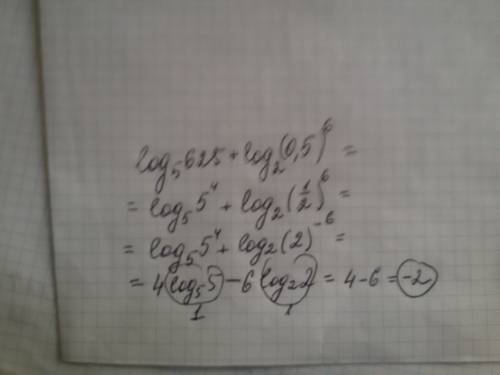 log₅625 + log₂(0,5)⁶ =
= log₅5⁴ + log₂(1/2)⁶ =
= log₅5⁴ + log₂(2)⁻⁶ =
= 4 log₅5 - 6 log₂2 = 4 - 6 = -2
1 1